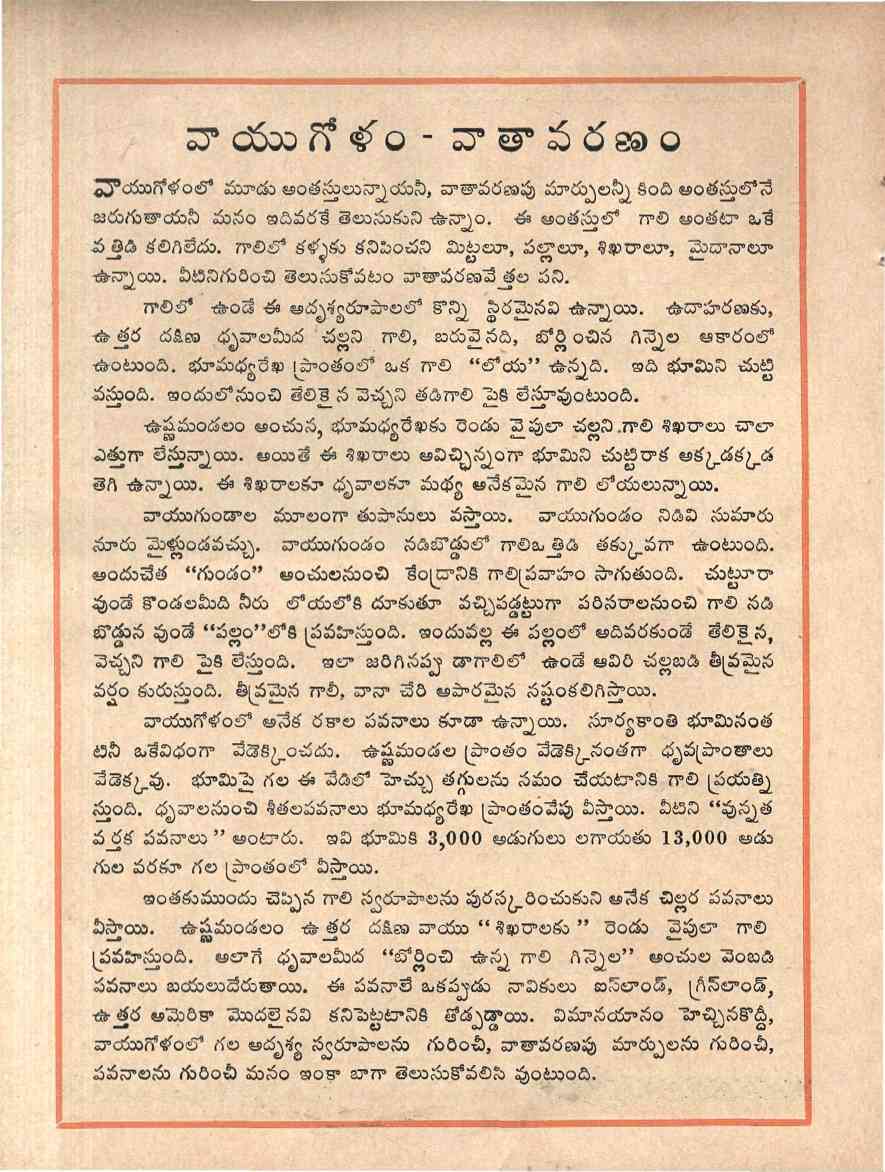 వాయుగోళం - వాతావరణం
వాయుగోళంలో మూడు అంతస్తులున్నాయనీ, వాతావరణపు మార్పులన్నీ కింది అంతస్తులోనే
జరుగుతాయనీ మనం ఇదివరకే తెలుసుకుని ఉన్నాం. ఈ అంతస్తులో గాలి అంతటా ఒకే
వత్తిడి కలిగిలేదు. గాలిలో కళ్ళకు కనిపించని మిట్టలూ, పల్లాలూ, శిఖరాలూ, మైదానాలూ
ఉన్నాయి. వీటినిగురించి తెలుసుకోవటం వాతావరణవేత్తల పని.
గాలిలో ఉండే ఈ అదృశ్యరూపాలలో కొన్ని స్థిరమైనవి ఉన్నాయి. ఉదాహరణకు,
ఉత్తర దక్షిణ ధృవాలమీద చల్లని గాలి, బరువైనది, బోర్లించిన గిన్నెల ఆకారంలో
ఉంటుంది. భూమధ్యరేఖ ప్రాంతంలో ఒక గాలి “లోయ” ఉన్నది. ఇది భూమిని చుట్టి
వస్తుంది. ఇందులోనుంచి తేలికైన వెచ్చని తడిగాలి పైకి లేస్తూవుంటుంది.
ఉష్ణమండలం అంచున, భూమధ్యరేఖకు రెండు వైపులా చల్లని గాలి శిఖరాలు చాలా
ఎత్తుగా లేస్తున్నాయి. అయితే ఈ శిఖరాలు అవిచ్ఛిన్నంగా భూమిని చుట్టిరాక అక్కడక్కడ
తెగి ఉన్నాయి. ఈ శిఖరాలకూ ధృవాలకూ మధ్య అనేకమైన గాలి లోయలున్నాయి.
వాయుగుండాల మూలంగా తుపానులు వస్తాయి. వాయుగుండం నిడివి సుమారు
నూరు మైళ్లుండవచ్చు. వాయుగుండం నడిబొడ్డులో గాలిఒత్తిడి తక్కువగా ఉంటుంది.
అందుచేత “గుండం” అంచులనుంచి కేంద్రానికి గాలిప్రవాహం సాగుతుంది. చుట్టూరా
వుండే కొండలమీది నీరు లోయలోకి దూకుతూ వచ్చిపడ్డట్టుగా పరిసరాలనుంచి గాలి నడి
బొడ్డున వుండే “పల్లం”లోకి ప్రవహిస్తుంది. ఇందువల్ల ఈ పల్లంలో అదివరకుండే తేలికైన,
వెచ్చని గాలి పైకి లేస్తుంది. ఇలా జరిగినప్పు డాగాలిలో ఉండే ఆవిరి చల్లబడి తీవ్రమైన
వర్షం కురుస్తుంది. తీవ్రమైన గాలీ, వానా చేరి అపారమైన నష్టంకలిగిస్తాయి.
వాయుగోళంలో అనేక రకాల పవనాలు కూడా ఉన్నాయి. సూర్యకాంతి భూమినంత
టినీ ఒకేవిధంగా వేడెక్కించదు. ఉష్ణమండల ప్రాంతం వేడెక్కినంతగా ధృవప్రాంతాలు
వేడెక్కవు. భూమిపై గల ఈ వేడిలో హెచ్చు తగ్గులను సమం చేయటానికి గాలి ప్రయత్ని
స్తుంది. ధృవాలనుంచి శీతలపవనాలు భూమధ్యరేఖ ప్రాంతంవేపు వీస్తాయి. వీటిని “వున్నత
వర్తక పవనాలు” అంటారు. ఇవి భూమికి 3,000 అడుగులు లగాయతు 13,000 అడు
గుల వరకూ గల ప్రాంతంలో వీస్తాయి.
ఇంతకుముందు చెప్పిన గాలి స్వరూపాలను పురస్కరించుకుని అనేక చిల్లర పవనాలు
వీస్తాయి. ఉష్ణమండలం ఉత్తర దక్షిణ వాయు “శిఖరాలకు” రెండు వైపులా గాలి
ప్రవహిస్తుంది. అలాగే ధృవాలమీద “బోర్లించి ఉన్న గాలి గిన్నెల” అంచుల వెంబడి
పవనాలు బయలుదేరుతాయి. ఈ పవనాలే ఒకప్పుడు నావికులు ఐస్‌లాండ్, గ్రీన్‌లాండ్,
ఉత్తర అమెరికా మొదలైనవి కనిపెట్టటానికి తోడ్పడ్డాయి. విమానయానం హెచ్చినకొద్దీ,
వాయుగోళంలో గల అదృశ్య స్వరూపాలను గురించీ, వాతావరణపు మార్పులను గురించీ,
పవనాలను గురించీ మనం ఇంకా బాగా తెలుసుకోవలిసి వుంటుంది.